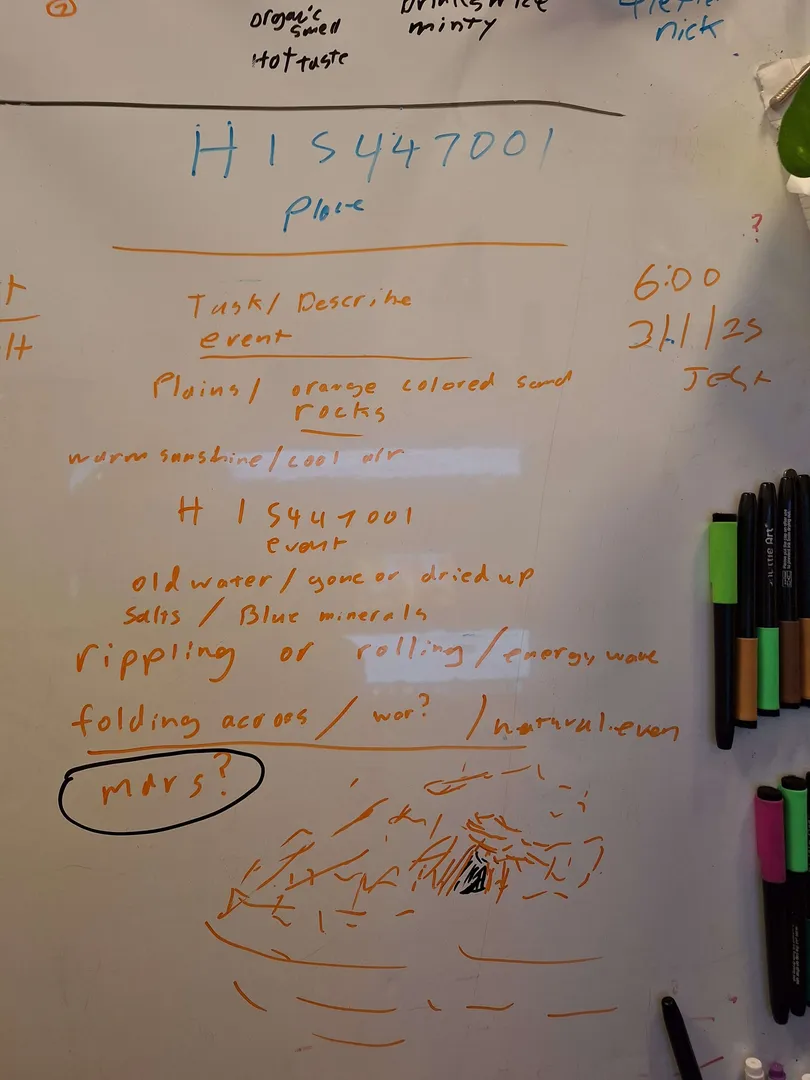 organic
smell
Hot taste
minty
nick
H I S447001
Place
?
Task/ Describe
event
6:00
31/1/25
Plains/ orange colored sand
rocks
warm sunshine/cool air
H I S447001
event
old water/ gone or dried up
salts / Blue minerals
rippling or rolling/energy wave
folding across/ war? /natural.even
mars?